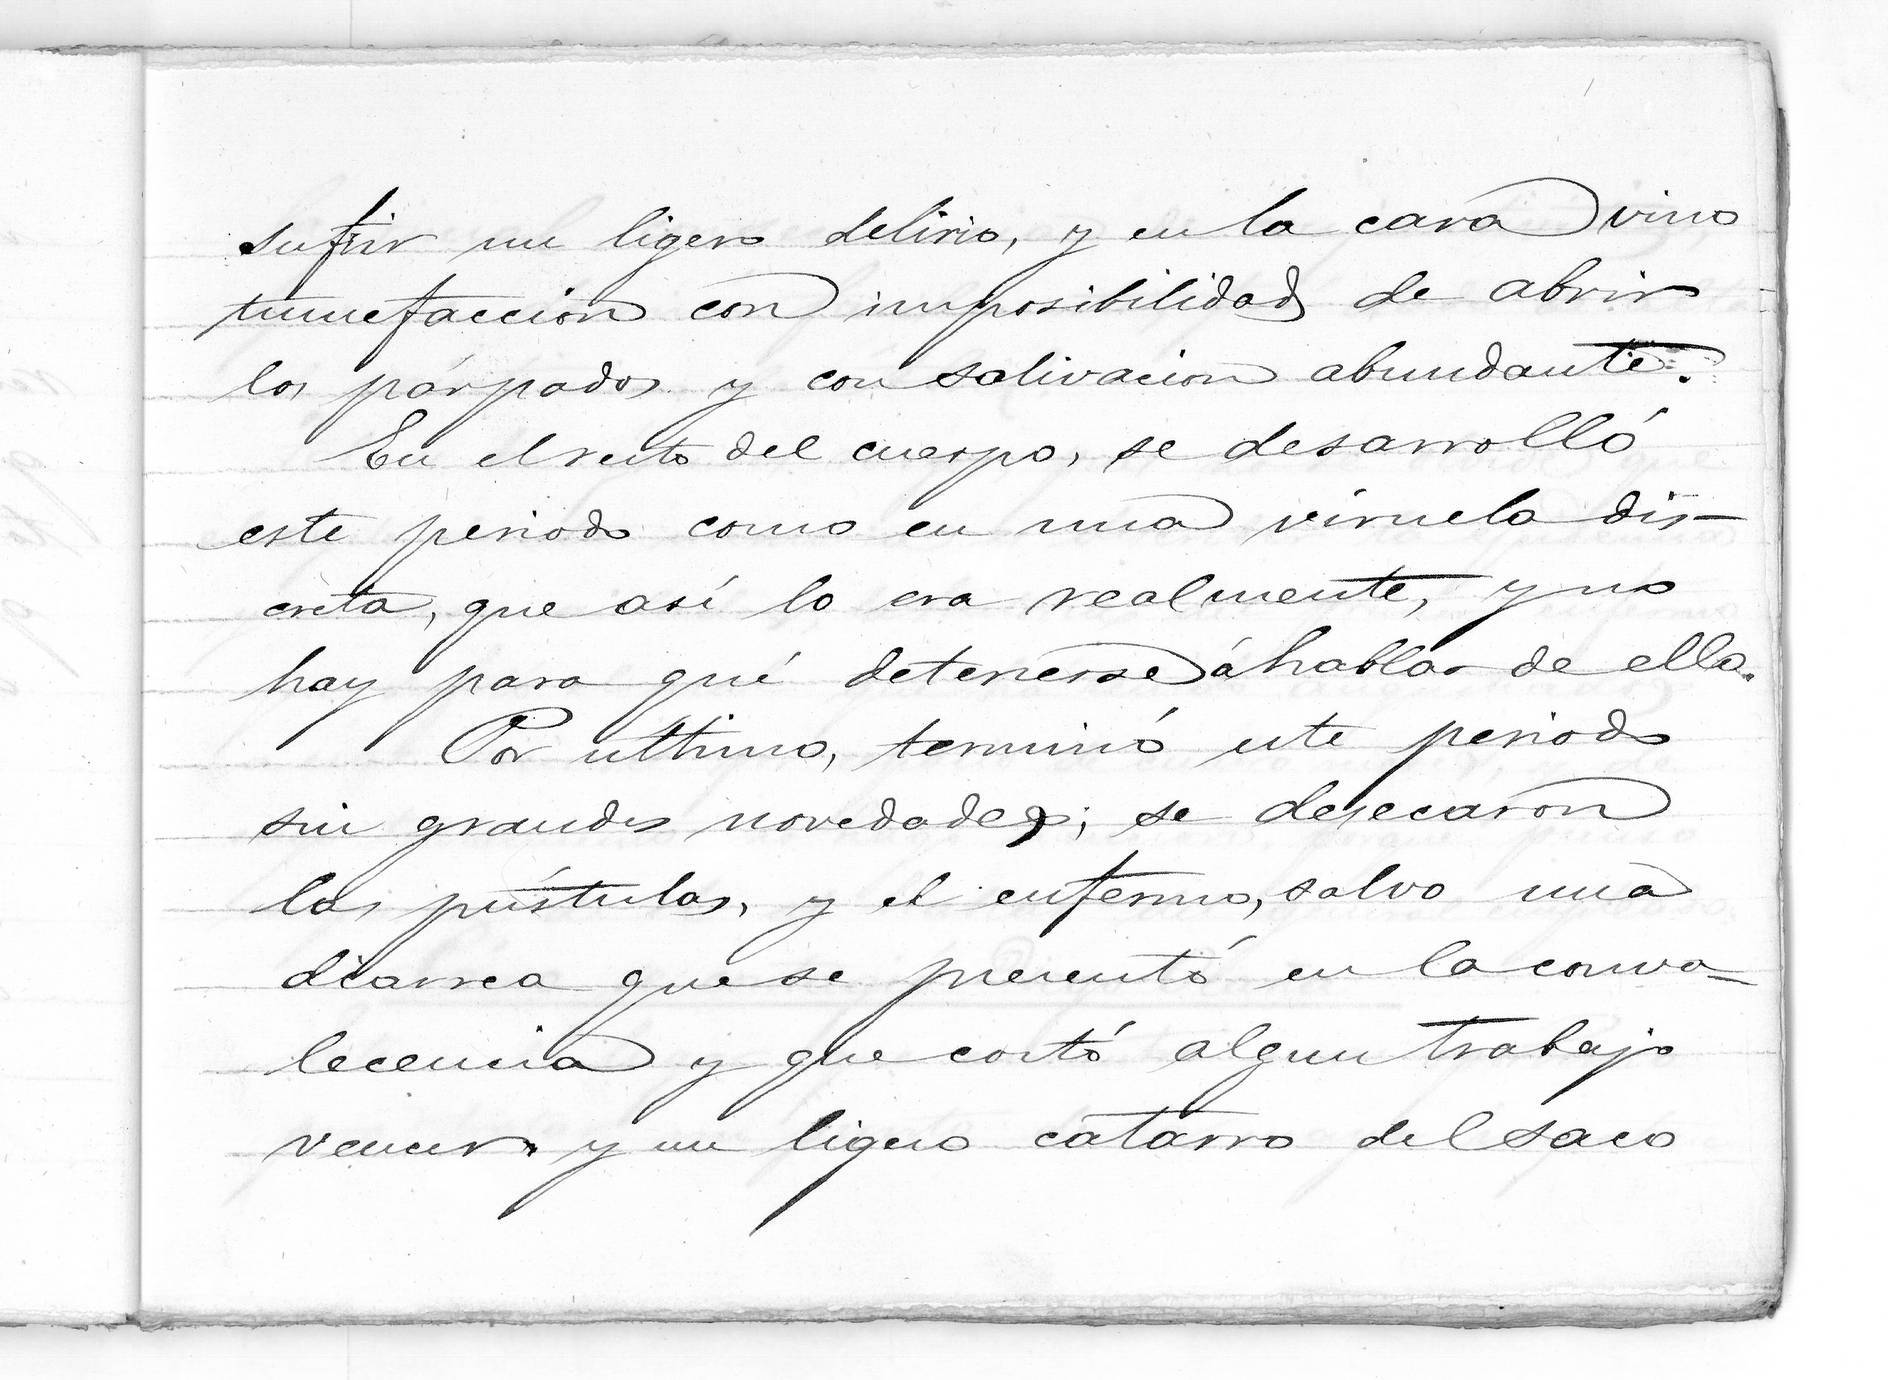 sufrir un ligero delirio, y en la cara vino
tumefaccion con imposibilidad de abrir
los párpados y con salivacion abundante.
En el resto del cuerpo, se desarrolló
este periodo como en una víruela dis-
creta, que así lo era realmente, y no
hay para qué detenerse á hablar de ella.
Por ultimo, terminó este periodo
sin grandes novedades; se desecaron
las pústulas, y el enfermo, salvo una
diarrea que se presentó en la conva-
lecencia y que costó algun trabajo
vencer y un ligero catarro del saco